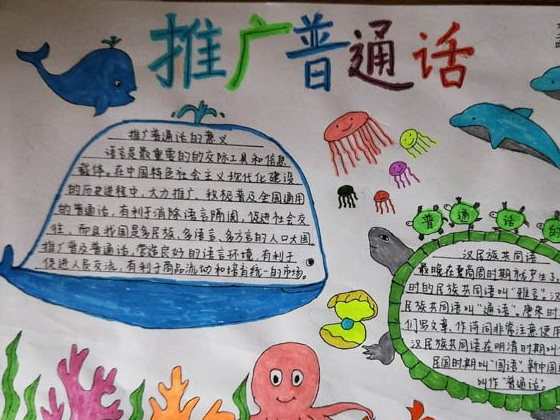 推广普通话
推广普通话的意义
语言是最重要的的交际工具和信息
载体。在中国特色社会主义现代化建设
的历史进程中，大力推广、积极普及全国通用
的普通话，有利于消除语言隔阂，促进社会交
往，而且我国是多民族、多语言、多方言的人口大国，
推广普及普通话，营造良好的语言环境，有利于
促进人民交流，有利于商品流动和培育统一的市场。
普通话的
汉民族共同语
最晚在夏商周时期就产生
时的民族共同语叫“雅言”
民族共同语叫“通话”，唐宋时
们写文章，作诗词非常注意使用
汉民族共同语在明清时期叫
民国时期叫“国语”新中国
叫作“普通话”